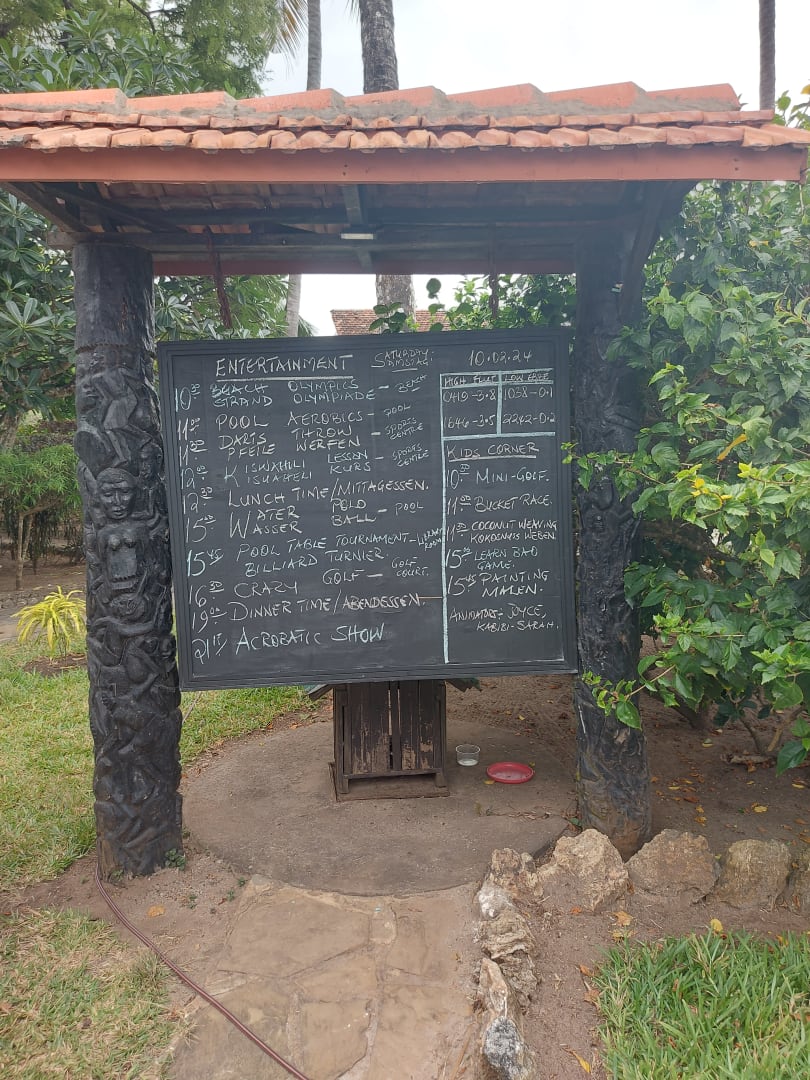 ENTERTAINMENT SATURDAY. SAMSTAG.
10.02.24
10³⁰ BEACH OLYMPICS – BEACH
STRAND OLYMPIADE
11⁰⁰ POOL AEROBICS – POOL
11³⁰ DARTS THROW – SPORTS
PFEILE WERFEN CENTRE
12⁰⁰ KISWAHILI LESSON – SPORTS
KISWAHELI KURS CENTRE
12³⁰ LUNCH TIME/MITTAGESSEN.
15⁰⁰ WATER POLO – POOL
WASSER BALL
15⁴⁵ POOL TABLE TOURNAMENT –
BILLIARD TURNIER.
16³⁰ CRAZY GOLF – GOLF
COURT.
19⁰⁰ DINNER TIME/ABENDESSEN.
21¹⁵ ACROBATIC SHOW
HIGH LOW
0419-3.8 1038-0.1
1646-3.5 2242-0.2
KIDS CORNER
10³⁰ MINI-GOLF.
11⁰⁰ BUCKET RACE.
11³⁰ COCONUT WEAVING
KOKOSNUSS WEBEN.
15⁰⁰ LEARN BAO
GAME.
15⁴⁵ PAINTING
MALEN.
ANIMATORS- JOYCE,
KABIBI-SARAH.